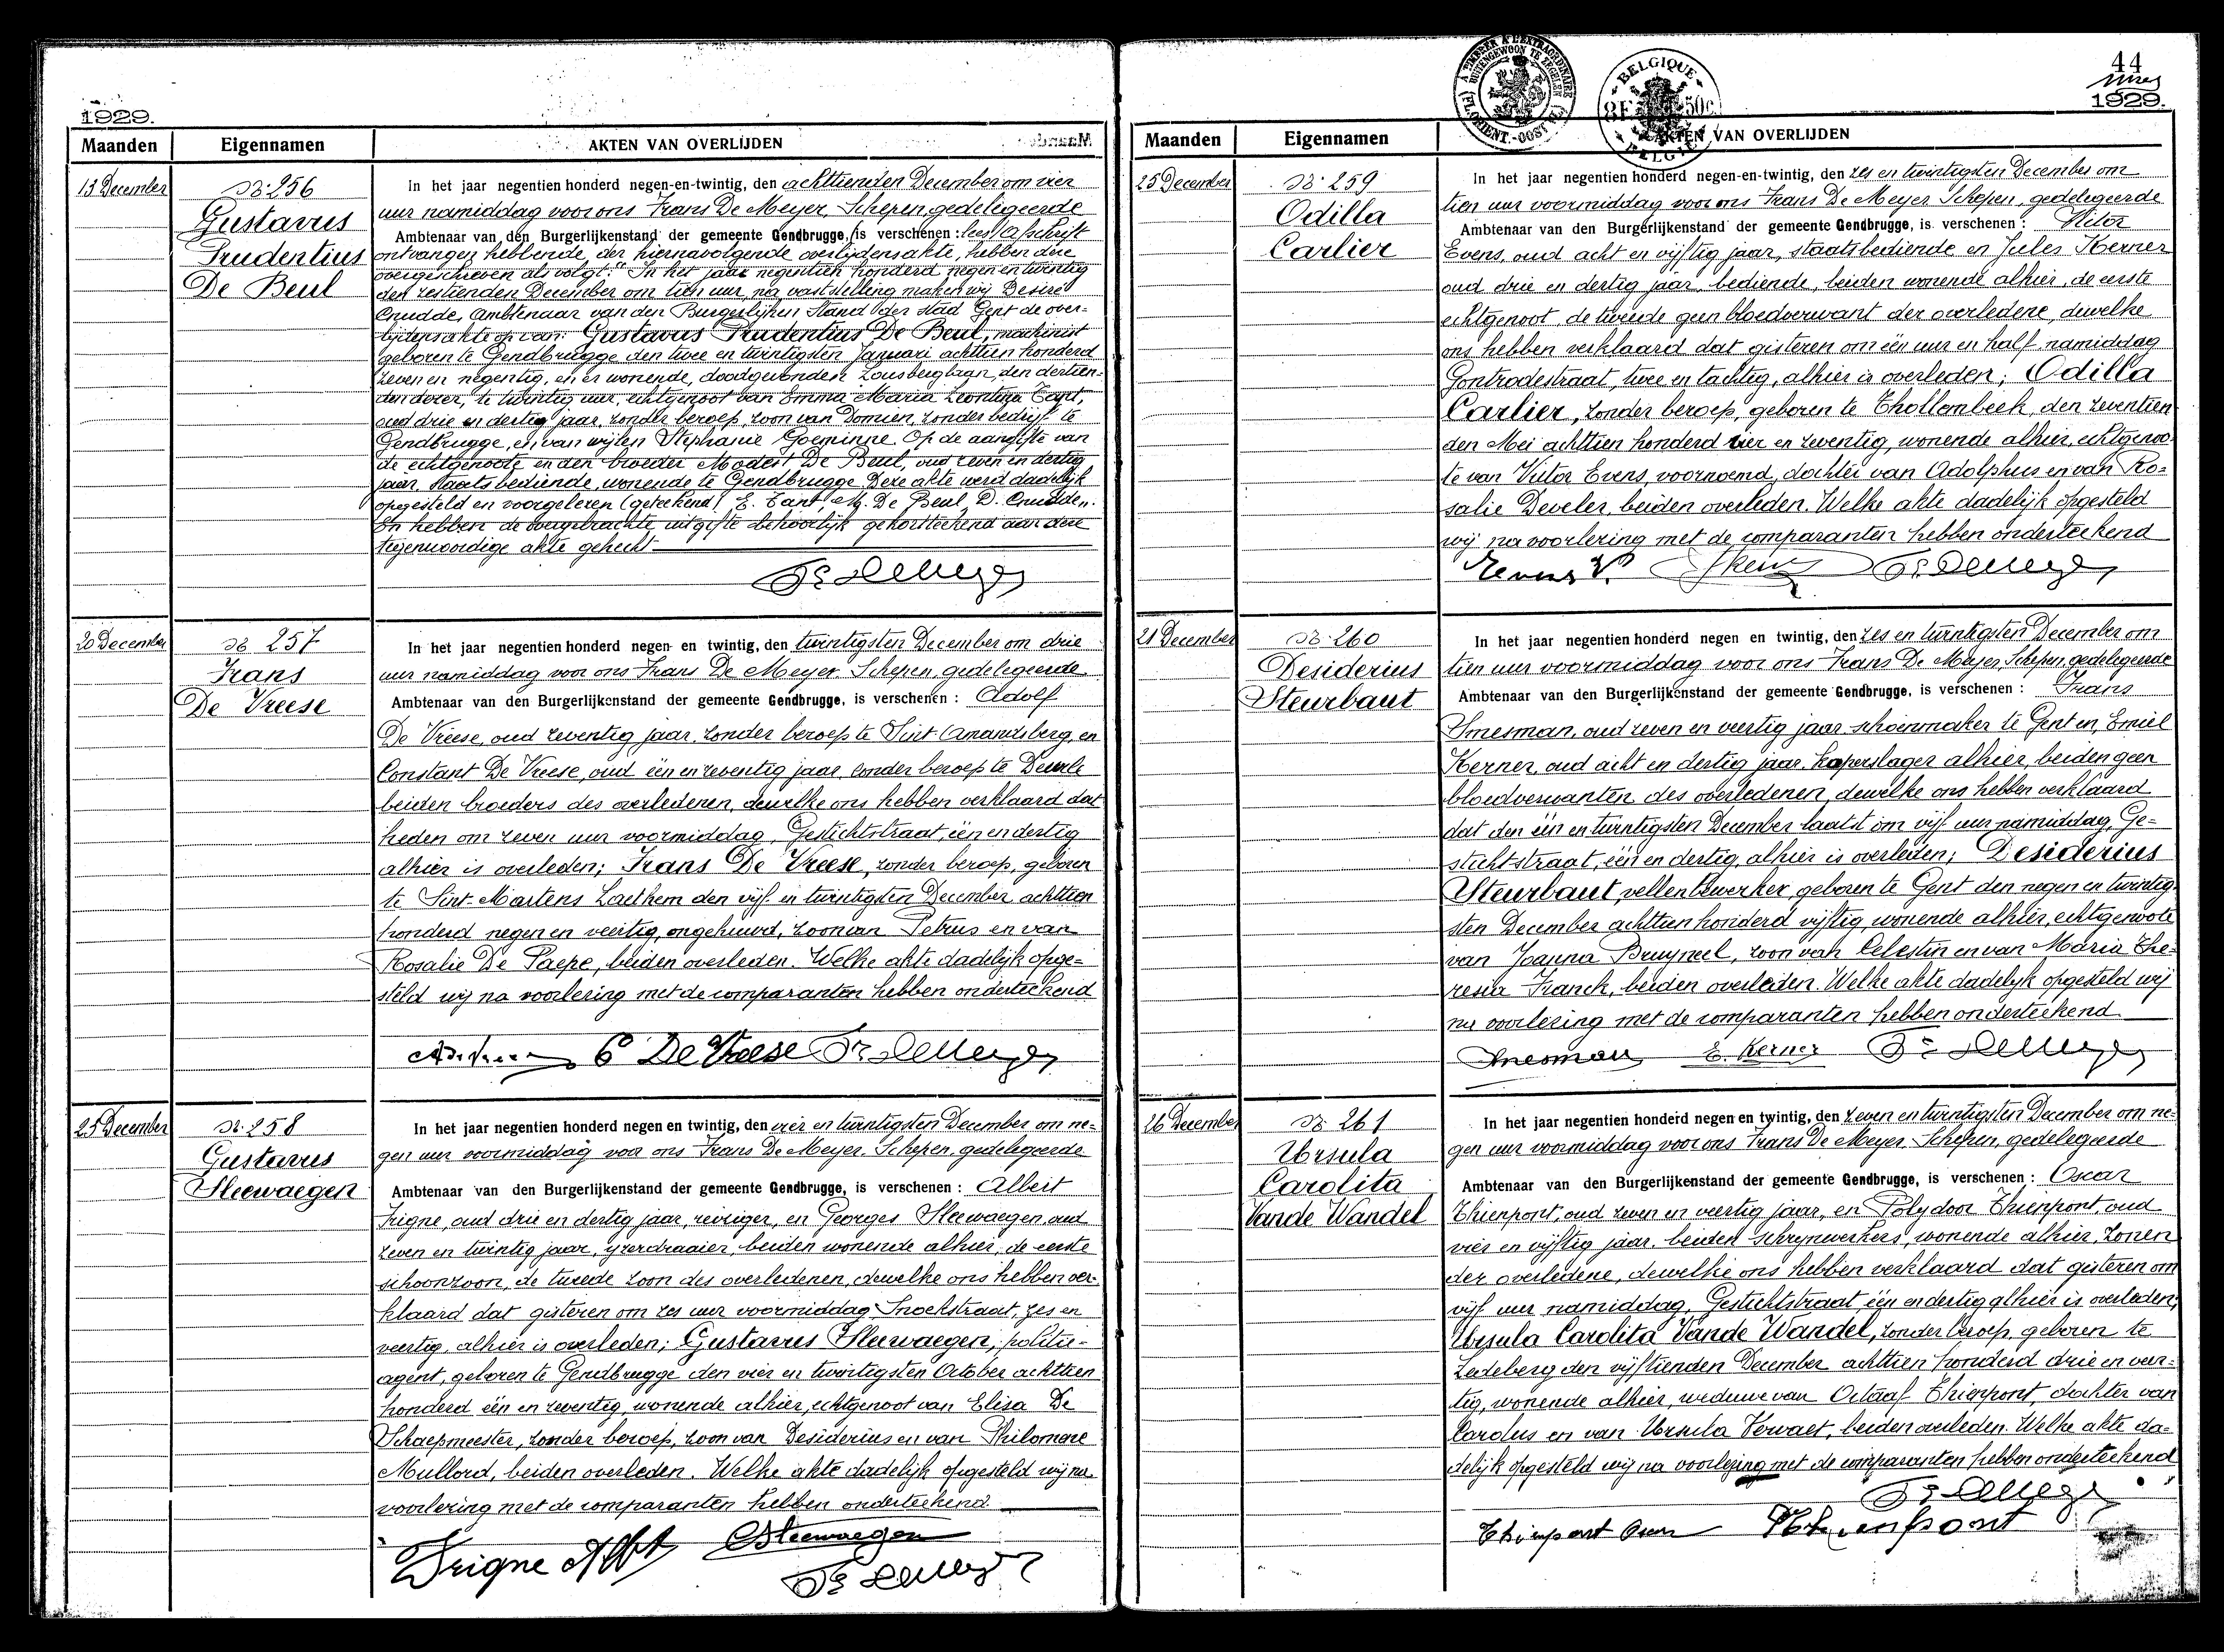 1929.
Maanden Eigennamen AKTEN VAN OVERLIJDEN
13 December
N: 256
Gustavus
Prudentius
De Beul
In het jaar negentien honderd negen-en-twintig, den achttienden December om vier
uur namiddag voor ons Frans De Meyer, Schepen, gedelegeerde
Ambtenaar van den Burgerlijkenstand der gemeente Gendbrugge, is verschenen: lees Afschrift
ontvangen hebbende, der hiernavolgende overlijdensakte, hebben deze
overgeschreven als volgt: "In het jaar negentien honderd negen en twintig
den zestienden December om tien uur, na vaststelling maken wij Desiré
Cnudde, Ambtenaar van den Burgerlijken Stand der stad Gent de over-
lijdensakte op van: Gustavus Prudentius De Beul, machinist
geboren te Gendbrugge den twee en twintigsten Januari achttien honderd
zeven en negentig, en er wonende, doodgevonden Zousberglaan, den dertien-
den dezer, te twintig uur, echtgenoot van Emma Maria Leontina Tant,
oud drie en dertig jaar, zonder beroep, zoon van Domien, zonder bedrijf te
Gendbrugge, en van wijlen Stephanie Goeminne. Op de aangifte van
de echtgenoote en den broeder Modest De Beul, oud zeven en dertig
jaar, staatsbediende, wonende te Gendbrugge. Deze akte werd dadelijk
opgesteld en voorgelezen (geteekend) E. Tant, M. De Beul, D. Cnudde".
En hebben de overgebrachte uitgifte behoorlijk gekortteekend aan deze
tegenwoordige akte gehecht
Fs De Meyer
20 December
N: 257
Frans
De Vreese
In het jaar negentien honderd negen- en twintig, den twintigsten December om drie
uur namiddag voor ons Frans De Meyer, Schepen, gedelegeerde
Ambtenaar van den Burgerlijkenstand der gemeente Gendbrugge, is verschenen: Adolf
De Vreese, oud zeventig jaar, zonder beroep te Sint Amandsberg, en
Constant De Vreese, oud één en zeventig jaar, zonder beroep te Deurle
beiden broeders des overledenen, dewelke ons hebben verklaard dat
heden om zeven uur voormiddag, Gestichtstraat, één en dertig
alhier is overleden; Frans De Vreese, zonder beroep, geboren
te Sint-Martens Laethem den vijf en twintigsten December achttien
honderd negen en veertig, ongehuwd, zoon van Petrus en van
Rosalie De Paepe, beiden overleden. Welke akte dadelijk opge-
steld wij na voorlezing met de comparanten hebben onderteekend
C De Vreese Fs De Meyer
25 December
N: 258
Gustavus
Sleewaegen
In het jaar negentien honderd negen en twintig, den vier en twintigsten December om ne-
gen uur voormiddag voor ons Frans De Meyer, Schepen, gedelegeerde
Ambtenaar van den Burgerlijkenstand der gemeente Gendbrugge, is verschenen: Albert
Trigne, oud drie en dertig jaar, reiziger, en Georges Sleewaegen, oud
zeven en twintig jaar, yzerdraaier, beiden wonende alhier, de eerste
schoonzoon, de tweede zoon des overledenen, dewelke ons hebben ver-
klaard dat gisteren om zes uur voormiddag Snoekstraat, zes en
veertig, alhier is overleden; Gustavus Sleewaegen, politie-
agent, geboren te Gendbrugge den vier en twintigsten October achttien
honderd één en zeventig, wonende alhier, echtgenoot van Elisa De
Schaepmeester, zonder beroep, zoon van Desiderius en van Philomene
Mullord, beiden overleden. Welke akte dadelijk opgesteld wij na
voorlezing met de comparanten hebben onderteekend
Trigne Albt GSleewaegen
Fs De Meyer
A TIMBRER A L'EXTRAORDINAIRE
BUITENGEWOON TE ZEGELEN
(FL. ORIENT.-OOST VL.)
BELGIQUE
8F 50c
BELGIE
44
1929.
Maanden Eigennamen AKTEN VAN OVERLIJDEN
25 December
N: 259
Odilla
Carlier
In het jaar negentien honderd negen-en-twintig, den zes en twintigsten December om
tien uur voormiddag voor ons Frans De Meyer Schepen, gedelegeerde
Ambtenaar van den Burgerlijkenstand der gemeente Gendbrugge, is verschenen: Victor
Evens, oud acht en vijftig jaar, staatsbediende en Jules Kerner
oud drie en dertig jaar, bediende, beiden wonende alhier, de eerste
echtgenoot, de tweede geen bloedverwant der overledene, dewelke
ons hebben verklaard dat gisteren om één uur en half namiddag
Gontrodestraat, twee en tachtig, alhier is overleden; Odilla
Carlier, zonder beroep, geboren te Thollembeek, den zeventien
den Mei achttien honderd vier en zeventig, wonende alhier, echtgenoo-
te van Victor Evens, voornoemd, dochter van Adolphus en van Ro-
salie Develer, beiden overleden. Welke akte dadelijk opgesteld
wij na voorlezing met de comparanten hebben onderteekend
Evens V. Fs De Meyer
21 December
N: 260
Desiderius
Steurbaut
In het jaar negentien honderd negen en twintig, den zes en twintigsten December om
tien uur voormiddag voor ons Frans De Meyer, Schepen, gedelegeerde
Ambtenaar van den Burgerlijkenstand der gemeente Gendbrugge, is verschenen: Frans
Smesman, oud zeven en veertig jaar, schoenmaker te Gent en, Emiel
Kerner, oud acht en dertig jaar, koperslager alhier, beiden geen
bloedverwanten des overledenen, dewelke ons hebben verklaard
dat den één en twintigsten December laatst om vijf uur namiddag, Ge-
stichtstraat, één en dertig, alhier is overleden; Desiderius
Steurbaut, vellenbewerker, geboren te Gent den negen en twintig-
sten December achttien honderd vijftig, wonende alhier, echtgenoot
van Joanna Bruyneel, zoon van Celestin en van Maria The-
resia Franck, beiden overleden. Welke akte dadelyk opgesteld wij
na voorlezing met de comparanten hebben onderteekend
Smesman E. Kerner Fs De Meyer
26 December
N: 261
Ursula
Carolita
Vande Wandel
In het jaar negentien honderd negen en twintig, den zeven en twintigsten December om ne-
gen uur voormiddag voor ons Frans De Meyer, Schepen, gedelegeerde
Ambtenaar van den Burgerlijkenstand der gemeente Gendbrugge, is verschenen: Oscar
Thienpont, oud zeven en veertig jaar, en Polydoor Thienpont, oud
vier en vijftig jaar, beiden schrynwerkers, wonende alhier, zonen
der overledene, dewelke ons hebben verklaard dat gisteren om
vijf uur namiddag, Gestichtstraat, één en dertig alhier is overleden;
Ursula Carolita Vande Wandel, zonder beroep, geboren te
Ledeberg den vijftienden December achttien honderd drie en veer-
tig, wonende alhier, weduwe van Octaaf Thienpont, dochter van
Carolus en van Ursula Vervaet, beiden overleden. Welke akte da-
delijk opgesteld wij na voorlezing met de comparanten hebben onderteekend
Fs De Meyer
Thienpont Oscar Thienpont